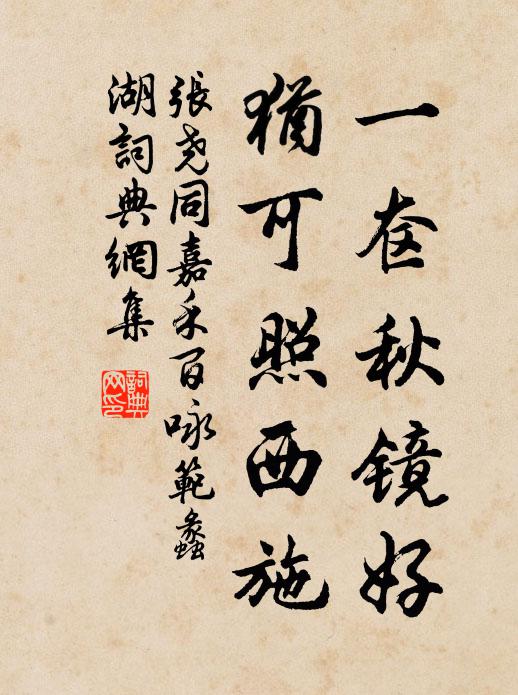 一奁秋镜好
猶可照西施
張尧同嘉禾百咏範蠡
湖詞典網集
詞典
网印